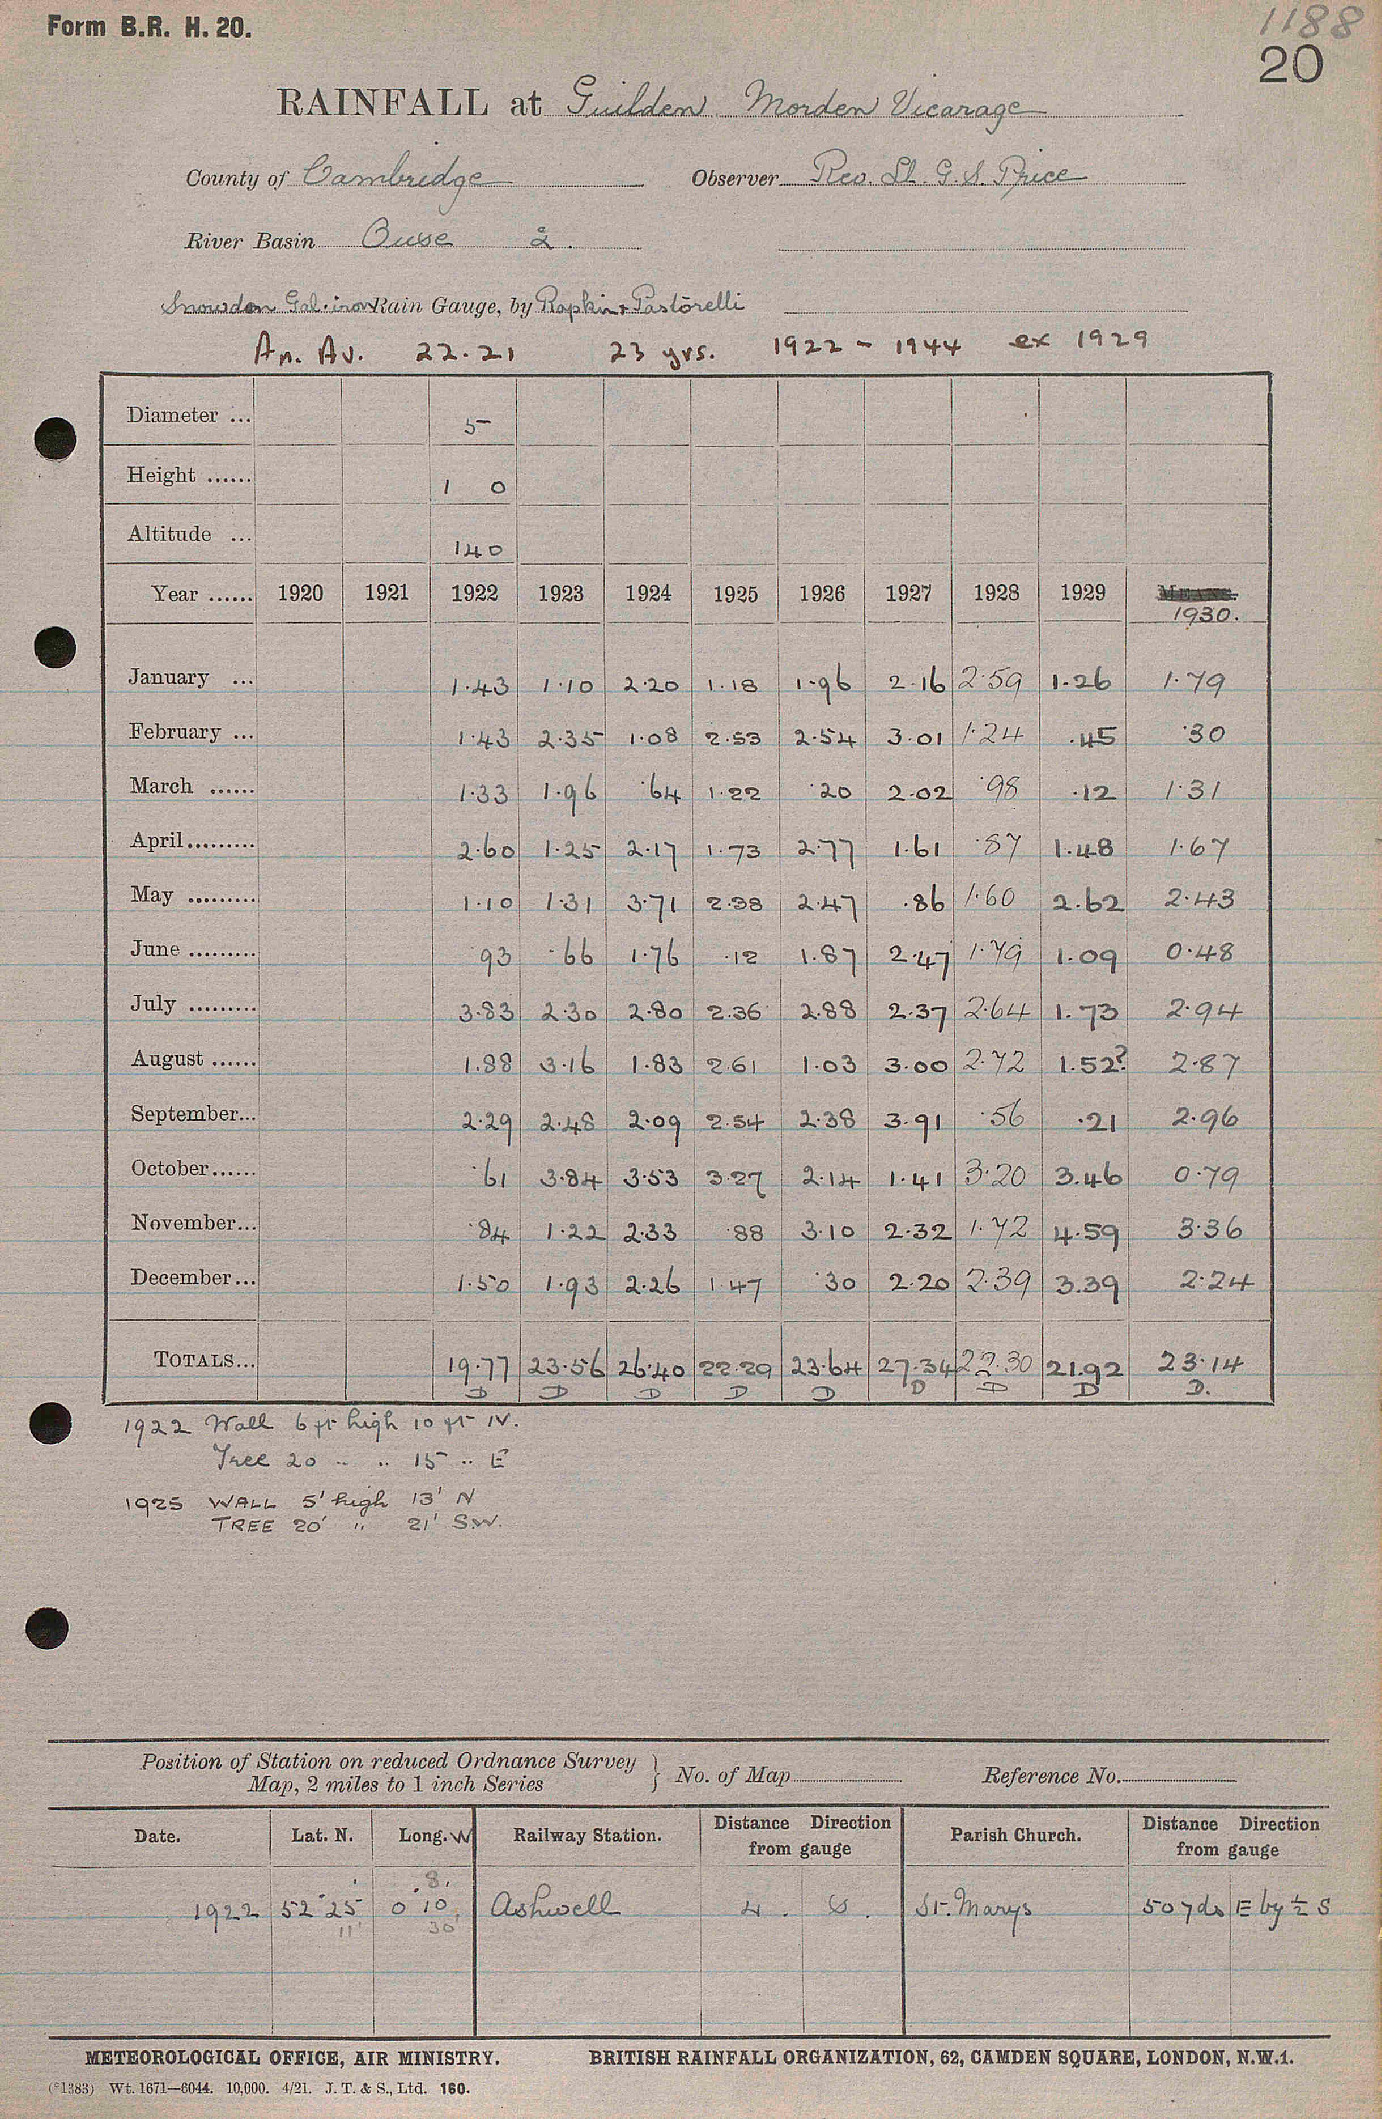 Form B.R. H. 20.
1188
20
RAINFALL at Guilden Morden Vicarage
County of Cambridge Observer Rev. Ll. G. S. Price
River Basin Ouse 2.
Snowdon Gal. iron Rain Gauge, by Rapkin + Pastorelli
An. Av. 22.21 23 yrs. 1922 - 1944 ex 1929
Diameter ... 5
Height ...... 1 0
Altitude ... 140
Year ...... 1920 1921 1922 1923 1924 1925 1926 1927 1928 1929 MEANS.
1930.
January ... 1.43 1.10 2.20 1.18 1.96 2.16 2.59 1.26 1.79
February ... 1.43 2.35 1.08 2.53 2.54 3.01 1.24 .45 .30
March ...... 1.33 1.96 .64 1.22 .20 2.02 .98 .12 1.31
April......... 2.60 1.25 2.17 1.73 2.77 1.61 .87 1.48 1.67
May ......... 1.10 1.31 3.71 2.38 2.47 .86 1.60 2.62 2.43
June ......... .93 .66 1.76 .12 1.87 2.47 1.79 1.09 0.48
July ......... 3.83 2.30 2.80 2.36 2.88 2.37 2.64 1.73 2.94
August ...... 1.88 3.16 1.83 2.61 1.03 3.00 2.72 1.52? 2.87
September... 2.29 2.48 2.09 2.54 2.38 3.91 .56 .21 2.96
October...... .61 3.84 3.53 3.27 2.14 1.41 3.20 3.46 0.79
November... .84 1.22 2.33 .88 3.10 2.32 1.72 4.59 3.36
December... 1.50 1.93 2.26 1.47 .30 2.20 2.39 3.39 2.24
TOTALS... 19.77 23.56 26.40 22.29 23.64 27.34 22.30 21.92 23.14
D D D D D D D D D.
1922 Wall 6 ft high 10 ft W.
Tree 20 " " 15 " E
1925 WALL 5' high 13' N
TREE 20' " 21' S.W.
Position of Station on reduced Ordnance Survey
Map, 2 miles to 1 inch Series } No. of Map Reference No.
Date. Lat. N. Long. W Railway Station. Distance Direction from gauge Parish Church. Distance Direction from gauge
8'
1922 52° 25' 0° 10' Ashwell 4. S. St. Marys 50 yds E by ½ S
11' 30"
METEOROLOGICAL OFFICE, AIR MINISTRY. BRITISH RAINFALL ORGANIZATION, 62, CAMDEN SQUARE, LONDON, N.W.1.
(*1383) Wt. 1671—6044. 10,000. 4/21. J. T. & S., Ltd. 160.